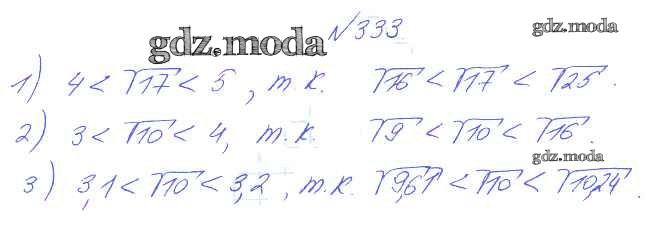 №333
gdz.moda
gdz.moda
1) 4 < √17 < 5, т.к. √16 < √17 < √25.
2) 3 < √10 < 4, т.к. √9 < √10 < √16.
gdz.moda
3) 3,1 < √10 < 3,2, т.к. √9,61 < √10 < √10,24.